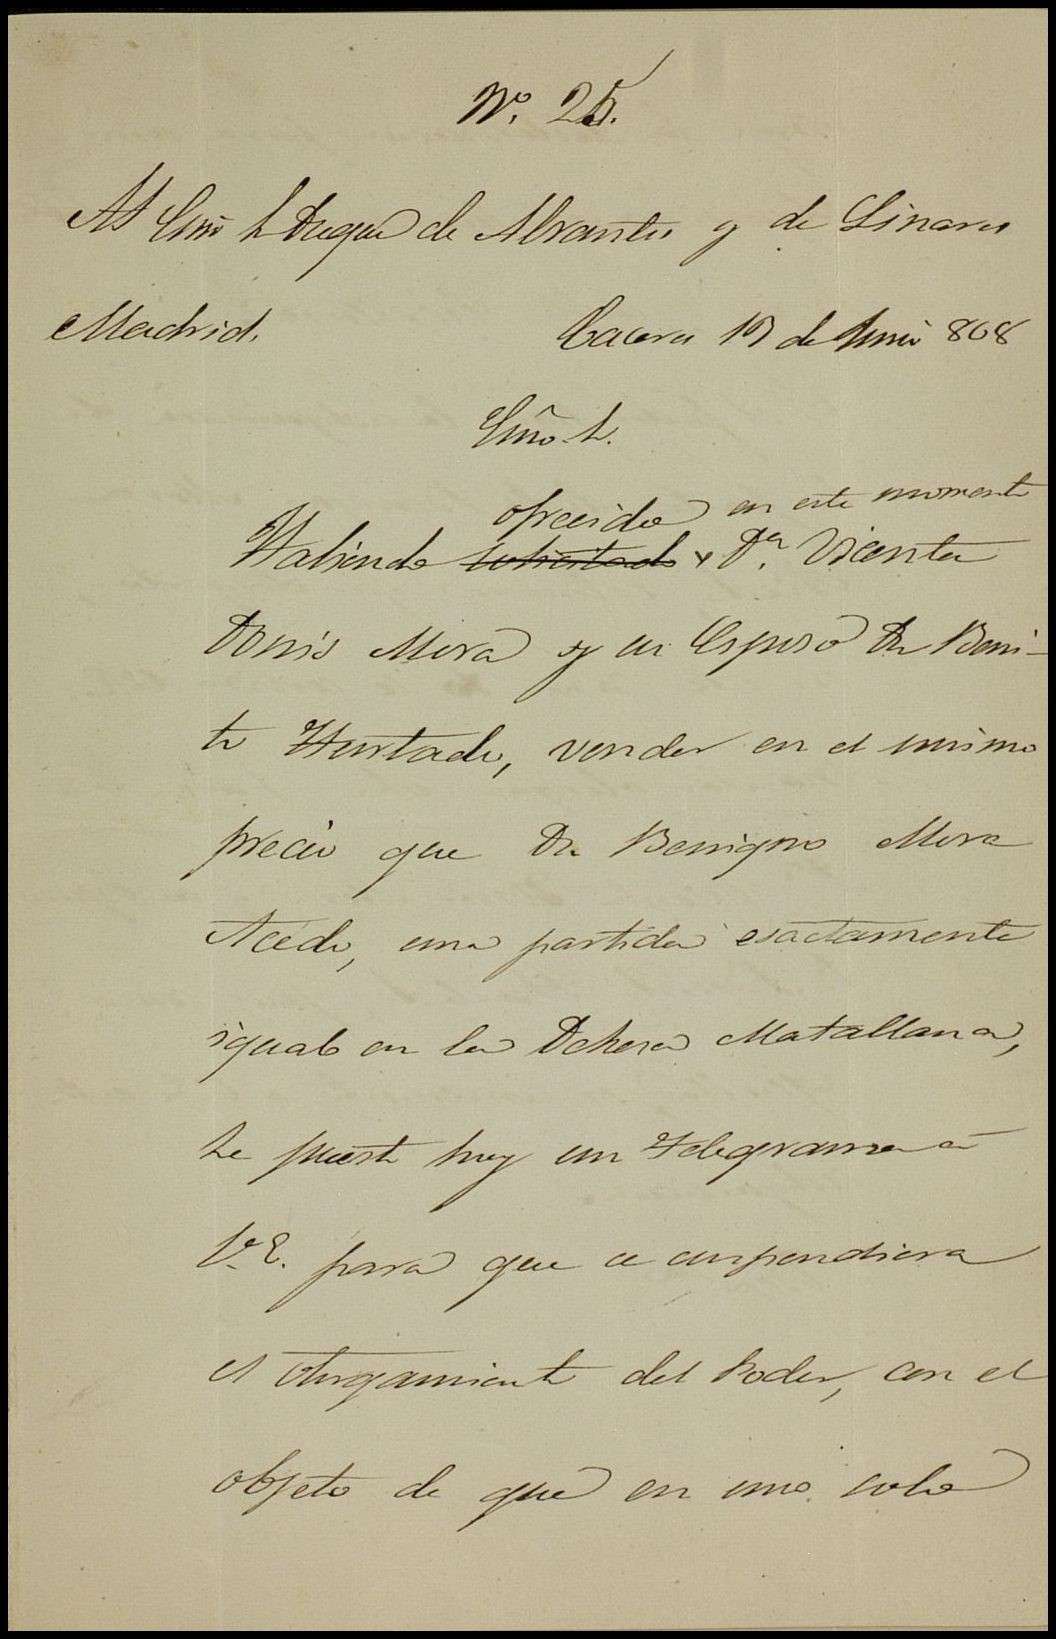 Nº. 25.
Al Exmo Sr Duque de Abrantes y de Linares
Madrid.
Caceres 19 de Junio 868
Exmo Sr.
ofrecido en este momento
Habiendo solicitado x Dª. Vicenta
Donis Mora y su Esposo Dn Beni-
to Hurtado, vender en el mismo
precio que Dn Benigno Mora
Acedo, una partida esactamente
igual en la Dehesa Matallana,
he puesto hoy un telegrama á
V.E. para que se suspendiera
el otorgamiento del Poder, con el
objeto de que en uno solo